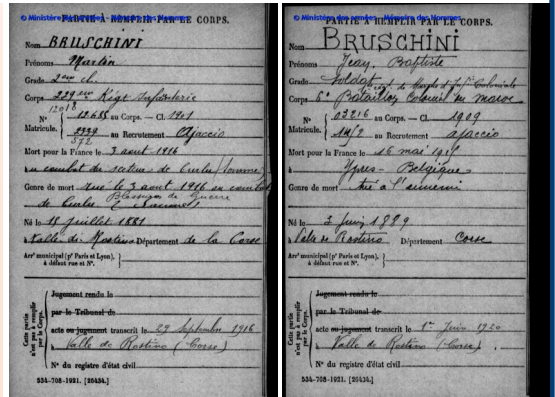 © Ministère des armées - Mémoire des Hommes
PARTIE À REMPLIR PAR LE CORPS.
Nom BRUSCHINI
Prénoms Martin
Grade 2eme cl.
Corps 229eme Régt Infanterie
12018
N° 12.685 au Corps. — Cl. 1901
Matricule. 2339 au Recrutement Ajaccio
572
Mort pour la France le 3 aout 1916
au combat du secteur de Curlu (Somme)
Genre de mort tué le 3 aout 1916 au combat
de Curlu
Blessures de Guerre
Né le 15 juillet 1881
à Valle di Rostino Département de la Corse
Arrt municipal (pr Paris et Lyon), à défaut rue et N°.
Cette partie n'est pas à remplir par le Corps.
Jugement rendu le
par le Tribunal de
acte ou jugement transcrit le 29 Septembre 1916
à Valle de Rostino (Corse)
N° du registre d'état civil
534-708-1921. [26434.]
© Ministère des armées - Mémoire des Hommes
PARTIE À REMPLIR PAR LE CORPS.
Nom BRUSCHINI
Prénoms Jean Baptiste
Grade Soldat
Regt de Marche d'Infie Coloniale
Corps 6e Bataillon Colonial du maroc
N° 03216 au Corps. — Cl. 1909
Matricule. au Recrutement ajaccio
Mort pour la France le 16 mai
à Ypres - Belgique
Genre de mort tué à l'ennemi
Né le 3 juin 1889
à Valle de Rostino Département Corse
Arrt municipal (pr Paris et Lyon), à défaut rue et N°.
Cette partie n'est pas à remplir par le Corps.
Jugement rendu le
par le Tribunal de
acte ou jugement transcrit le 1er Juin 1920
à Valle de Rostino (Corse).
N° du registre d'état civil
534-708-1921. [26434.]